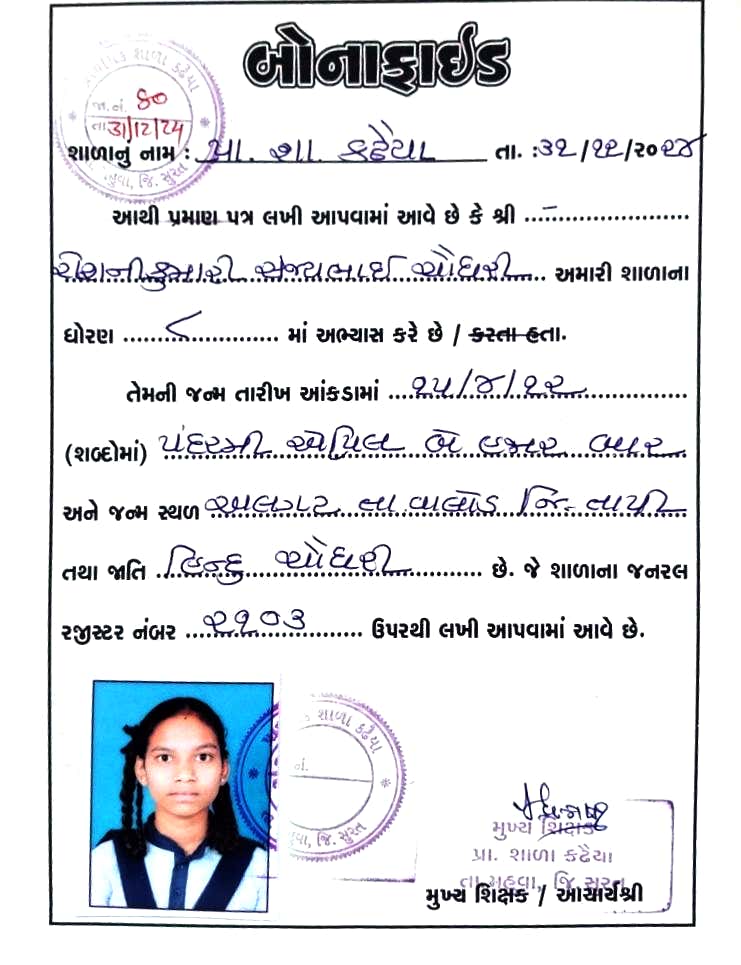 બોનાફાઈડ
પ્રાથમિક શાળા કઢૈયા
જા.નં. ૬૦
તા. 31/12/24
મહુવા, જિ. સુરત
શાળાનું નામ : પ્રા. શા. કઢૈયા તા. :૩૧/૧૨/૨૦૨૪
આથી પ્રમાણ પત્ર લખી આપવામાં આવે છે કે શ્રી ........................
રોશનીકુમારી સંજયભાઈ ચૌધરી અમારી શાળાના
ધોરણ ૮ માં અભ્યાસ કરે છે / કરતા હતા.
તેમની જન્મ તારીખ આંકડામાં ૧૫/૪/૧૨
(શબ્દોમાં) પંદરમી એપ્રિલ બે હજાર બાર
અને જન્મ સ્થળ અલગટ તા.વાલોડ જિ.તાપી
તથા જાતિ હિન્દુ ચૌધરી છે. જે શાળાના જનરલ
રજીસ્ટર નંબર ૨૧૦૩ ઉપરથી લખી આપવામાં આવે છે.
ક શાળા કઢૈયા
નં.
હુવા, જિ. સુરત
મુખ્ય શિક્ષક
પ્રા. શાળા કઢૈયા
તા.મહુવા, જિ.સુરત
મુખ્ય શિક્ષક / આચાર્યશ્રી